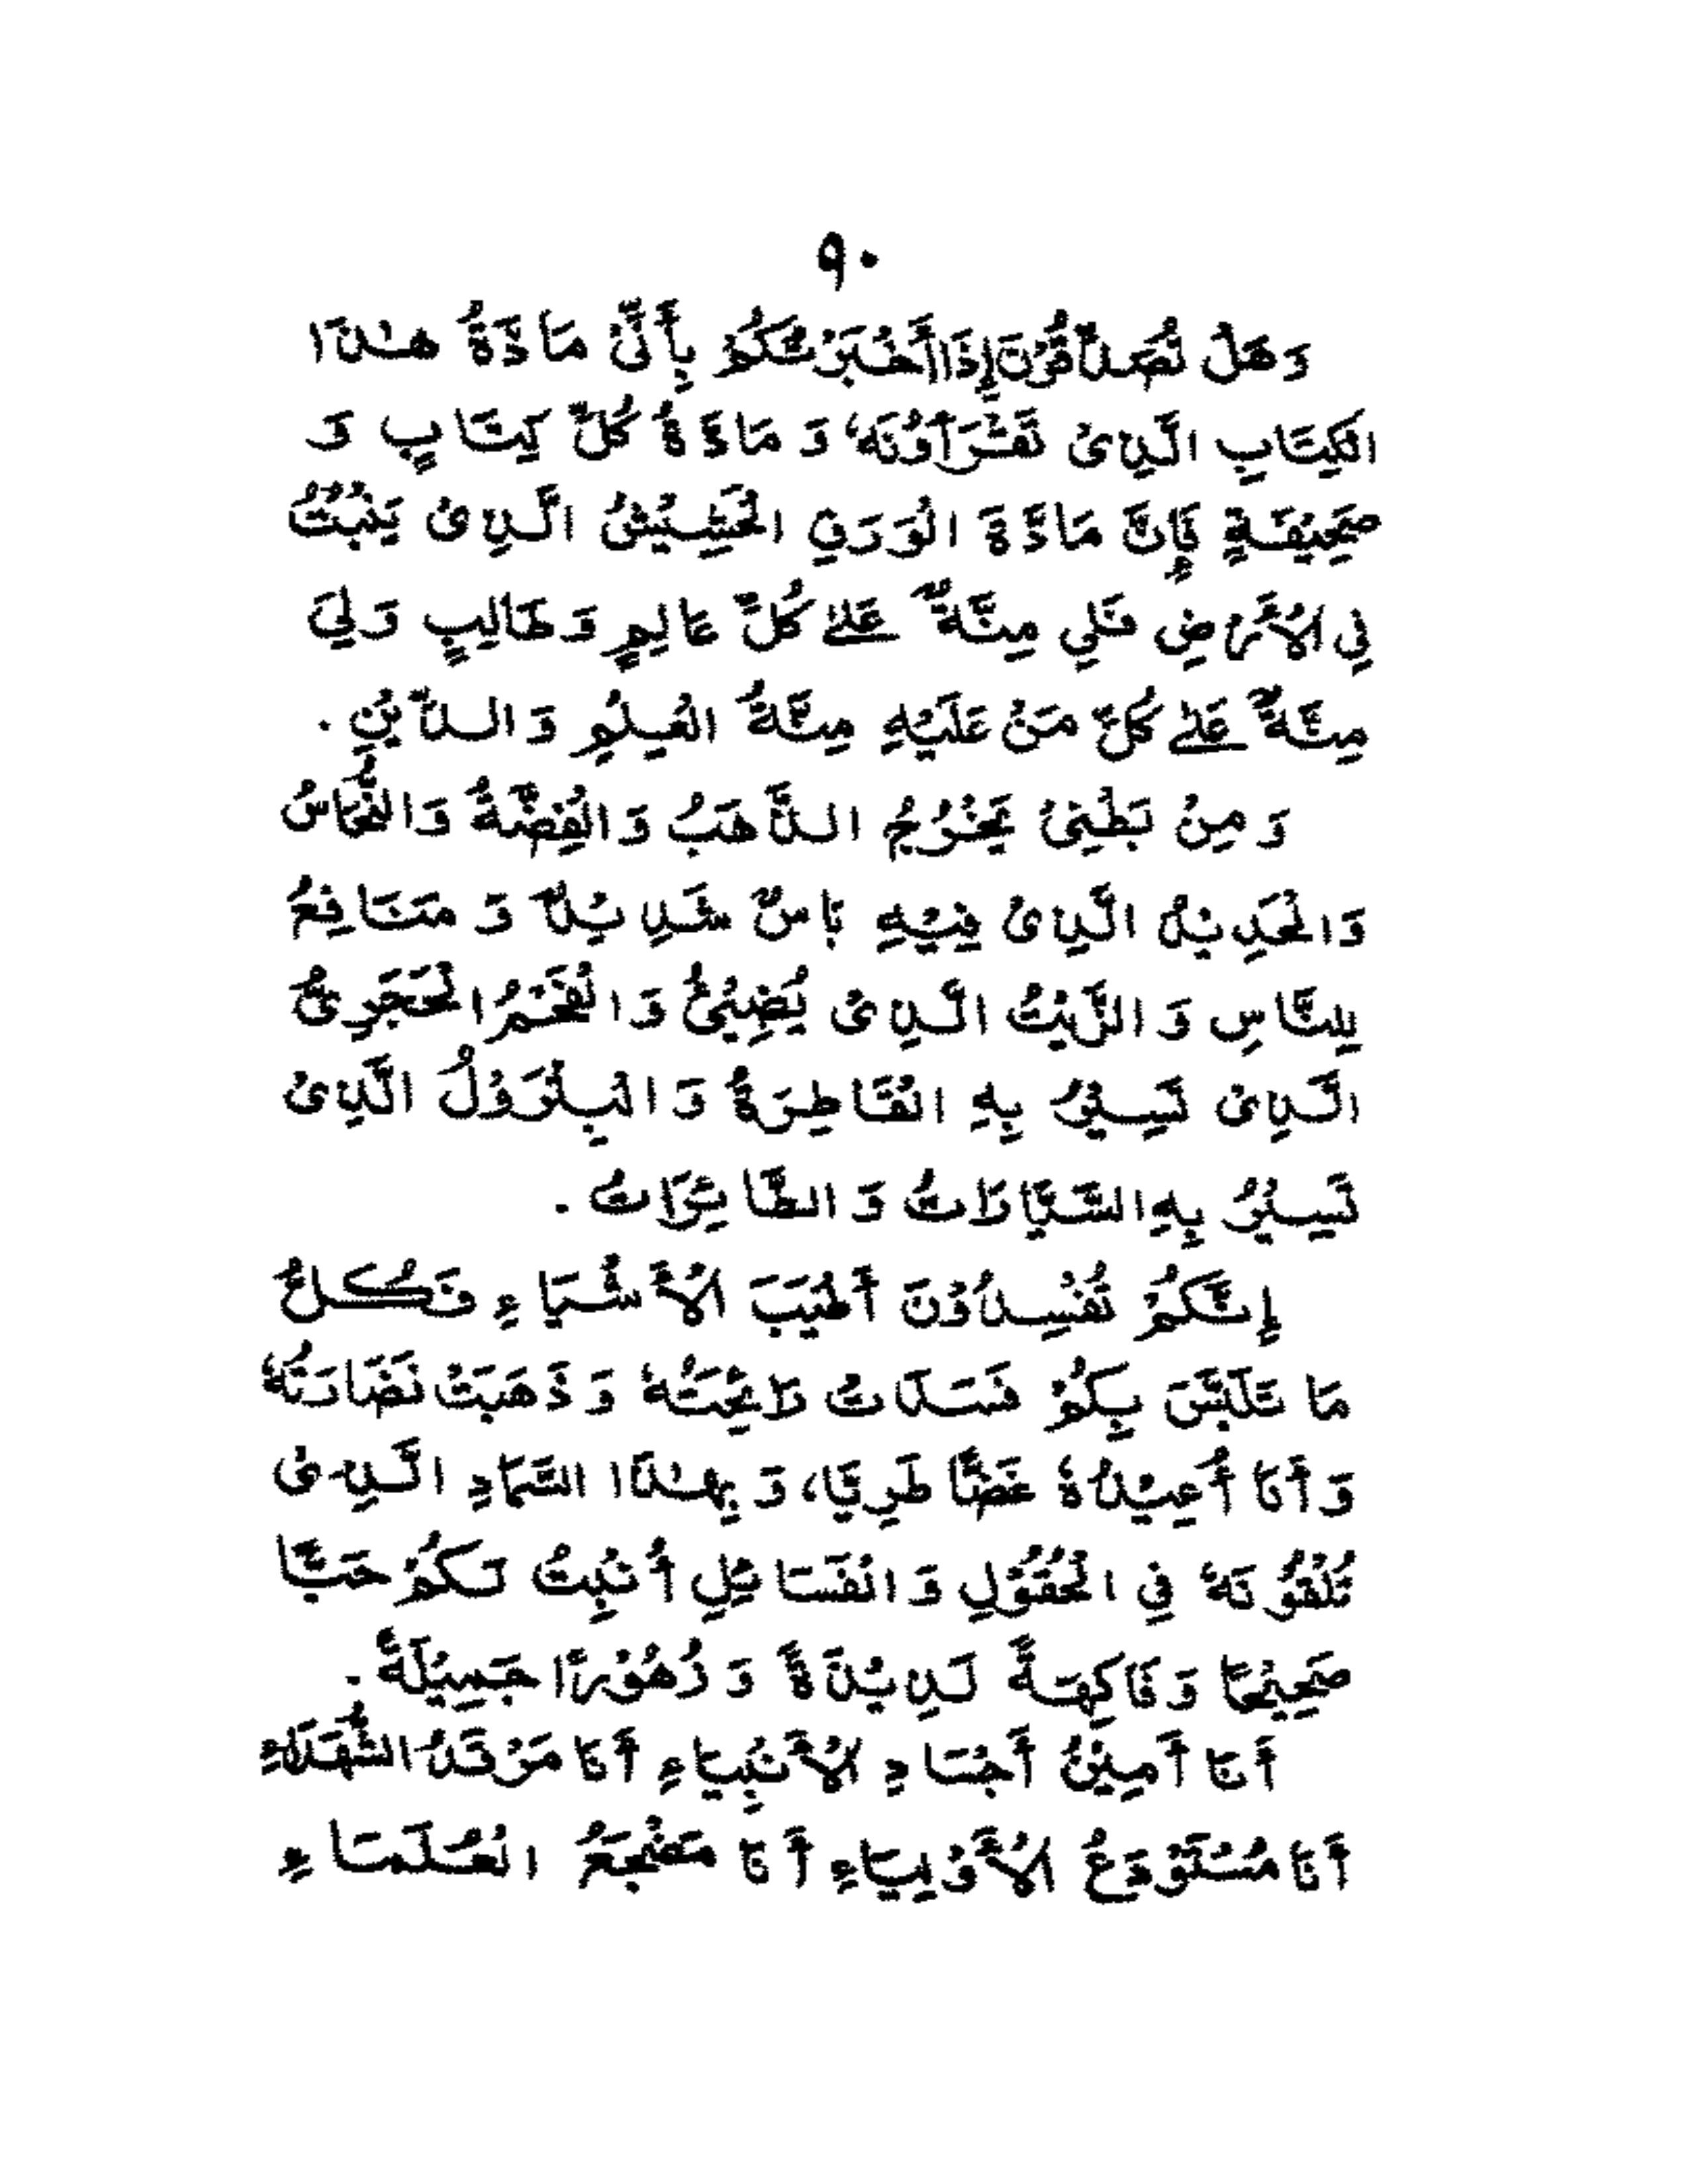 ٩٠
وَهَلْ تُصَدِّقُوْنَ إِذَا أَخْبَرْتُكُمْ بِأَنَّ مَادَّةَ هٰذَا
الكِتَابِ الَّذِىْ تَقْرَأُوْنَهٗ وَ مَادَّةَ كُلِّ كِتَابٍ وَ
صَحِيْفَةٍ فَإِنَّ مَادَّةَ الْوَرَقِ الْحَشِيْشُ الَّذِىْ يَنْبُتُ
فِي الْأَرْضِ فَلِي مِنَّةٌ عَلىٰ كُلِّ عَالِمٍ وَ طَالِبٍ وَلِيَ
مِنَّةٌ عَلىٰ كُلِّ مَنْ عَلَيْهِ مِنَّةُ الْعِلْمِ وَ الدِّيْنِ .
وَ مِنْ بَطْنِىْ يَخْرُجُ الذَّهَبُ وَ الْفِضَّةُ وَالنُّحَاسُ
وَالْحَدِيْدُ الَّذِىْ فِيْهِ بَاسٌ شَدِيْدٌ وَ مَنَافِعُ
لِلنَّاسِ وَ الزَّيْتُ الَّذِىْ يُضِيْئُ وَ الْفَحْمُ الْحَجَرِىُّ
الَّذِىْ تَسِيْرُ بِهِ الْقَاطِرَةُ وَ الْبِتْرَوْلُ الَّذِىْ
تَسِيْرُ بِهِ السَّيَّارَاتُ وَ الطَّائِرَاتُ .
إِنَّكُمْ تُفْسِدُوْنَ أَطْيَبَ الْأَشْيَاءِ فَكُلُّ
مَا تَلَبَّسَ بِكُمْ فَسَدَتْ رَائِحَتُهٗ وَ ذَهَبَتْ نَضَارَتُهٗ
وَ أَنَا أُعِيْدُهٗ غَضًّا طَرِيًّا، وَ بِهٰذَا السَّمَادِ الَّذِىْ
تُلْقُوْنَهٗ فِي الْحُقُوْلِ وَ الْفَسَائِلِ أُنْبِتُ لَكُمْ حَبًّا
صَحِيْحًا وَ فَاكِهَةً لَذِيْذَةً وَ زُهُوْرًا جَمِيْلَةً .
أَنَا أَمِيْنُ أَجْسَادِ الْأَنْبِيَاءِ أَنَا مَرْقَدُ الشُّهَدَاءِ
أَنَا مُسْتَوْدَعُ الْأَوْلِيَاءِ أَنَا مَضْجَعُ الْعُلَمَاءِ